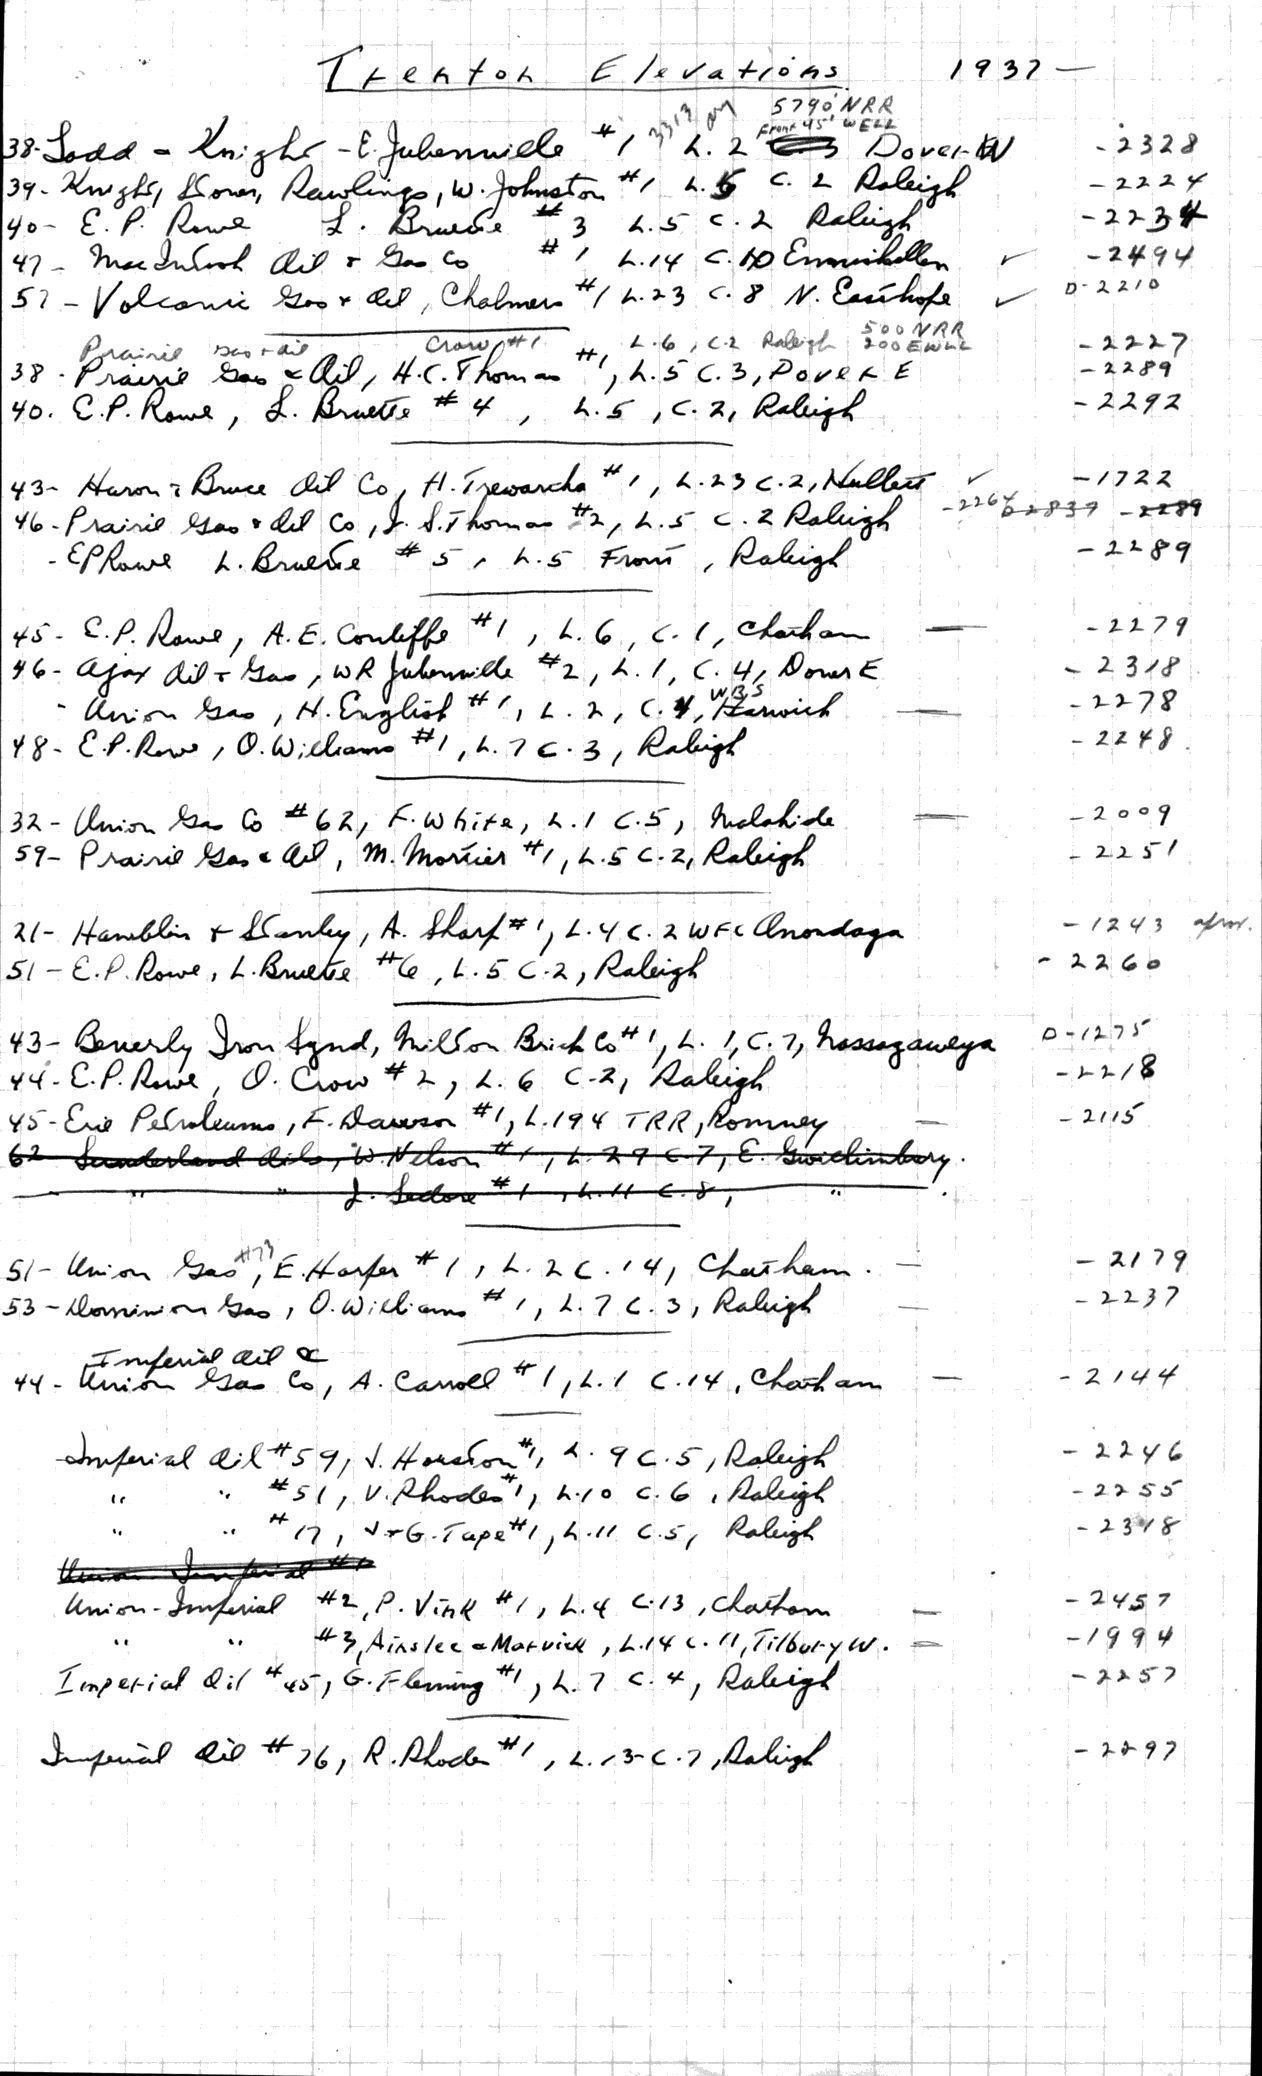 Trenton Elevations 1937 —
5790' NRR
Front 45' WELL
38- Todd - Knight - E. Jubenville #1 L. 2 C. 3 Dover W -2328
39- Knight, Stover, Rawlings, W. Johnston #1 L. 5 C. 2 Raleigh -2224
40- E. P. Rowe L. Bruette #3 L. 5 C. 2 Raleigh -2234
47- MacIntosh Oil + Gas Co #1 L. 14 C. 10 Enniskillen ✓ -2494
57- Volcanic Gas + Oil, Chalmers #1 L. 23 C. 8 N. Easthope ✓ D-2210
Prairie Gas + Oil Crow #1 L. 6, C.2 Raleigh 500 NRR 200 EWLL -2227
38- Prairie Gas & Oil, H. C. Thomas #1, L. 5 C. 3, Dover E -2289
40. E. P. Rowe, L. Bruette #4, L. 5, C. 2, Raleigh -2292
43- Huron & Bruce Oil Co, H. Trewartha #1, L. 23 C. 2, Hullett ✓ -1722
46- Prairie Gas & Oil Co, J. S. Thomas #2, L. 5 C. 2 Raleigh -2264 -2289
- EP Rowe L. Bruette #5, L. 5 Front, Raleigh -2289
45- E. P. Rowe, A. E. Cunliffe #1, L. 6, C. 1, Chatham — -2279
46- Ajax Oil + Gas, WR Jubenville #2, L. 1, C. 4, Dover E -2318
WBS
" Union Gas, H. English #1, L. 2, C. 4, Harwich — -2278
48- E. P. Rowe, O. Williams #1, L. 7 C. 3, Raleigh -2248
32- Union Gas Co #62, F. White, L. 1 C. 5, Malahide — -2009
59- Prairie Gas & Oil, M. Mortier #1, L. 5 C. 2, Raleigh -2251
21- Hamblin & Stanley, A. Sharp #1, L. 4 C. 2 WFC Onondaga -1243 aprox.
51- E. P. Rowe, L. Bruette #6, L. 5 C. 2, Raleigh -2260
43- Beverly Iron Synd, Milton Brick Co #1, L. 1, C. 7, Nassagaweya D-1275
44- E. P. Rowe, O. Crow #2, L. 6 C-2, Raleigh -2218
45- Erie Petroleums, F. Dawson #1, L. 194 TRR, Romney — -2115
62 Sunderland Oils, W. Nelson #1, L. 29 C. 7, E. Gwillimbury.
" " J. Sedore #1, L. 11 C. 8, "
#73
51- Union Gas, E. Harper #1, L. 2 C. 14, Chatham. — -2179
53- Dominion Gas, O. Williams #1, L. 7 C. 3, Raleigh — -2237
Imperial Oil &
44- Union Gas Co, A. Carroll #1, L. 1 C. 14, Chatham — -2144
Imperial Oil #59, J. Houston #1, L. 9 C. 5, Raleigh -2246
" " #51, V. Rhodes #1, L. 10 C. 6, Raleigh -2255
" " #17, J + G. Tape #1, L. 11 C. 5, Raleigh -2318
Union Imperial #1
Union-Imperial #2, P. Vink #1, L. 4 C. 13, Chatham — -2457
" " #3, Ainslee & Marvick, L. 14 C. 11, Tilbury W. = -1994
Imperial Oil #45, G. Fleming #1, L. 7 C. 4, Raleigh -2257
Imperial Oil #76, R. Rhodes #1, L. 13 - C. 7, Raleigh -2297